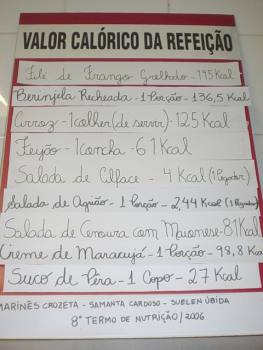 VALOR CALÓRICO DA REFEIÇÃO
Filé de Frango Grelhado - 195 Kcal
Berinjela Recheada - 1 Porção - 136,5 Kcal
Arroz - 1 colher (de servir) - 125 Kcal
Feijão - 1 Concha - 61 Kcal
Salada de Alface - 4 Kcal (1 Pegador)
Salada de Agrião - 1 Porção - 2,44 Kcal (1 Pegador)
Salada de Cenoura com Maionese - 81 Kcal
Creme de Maracujá - 1 Porção - 98,8 Kcal
Suco de Pêra - 1 Copo - 27 Kcal
MARINÊS CROZETA - SAMANTA CARDOSO - SUELEN ÚBIDA
8º TERMO DE NUTRIÇÃO / 2006